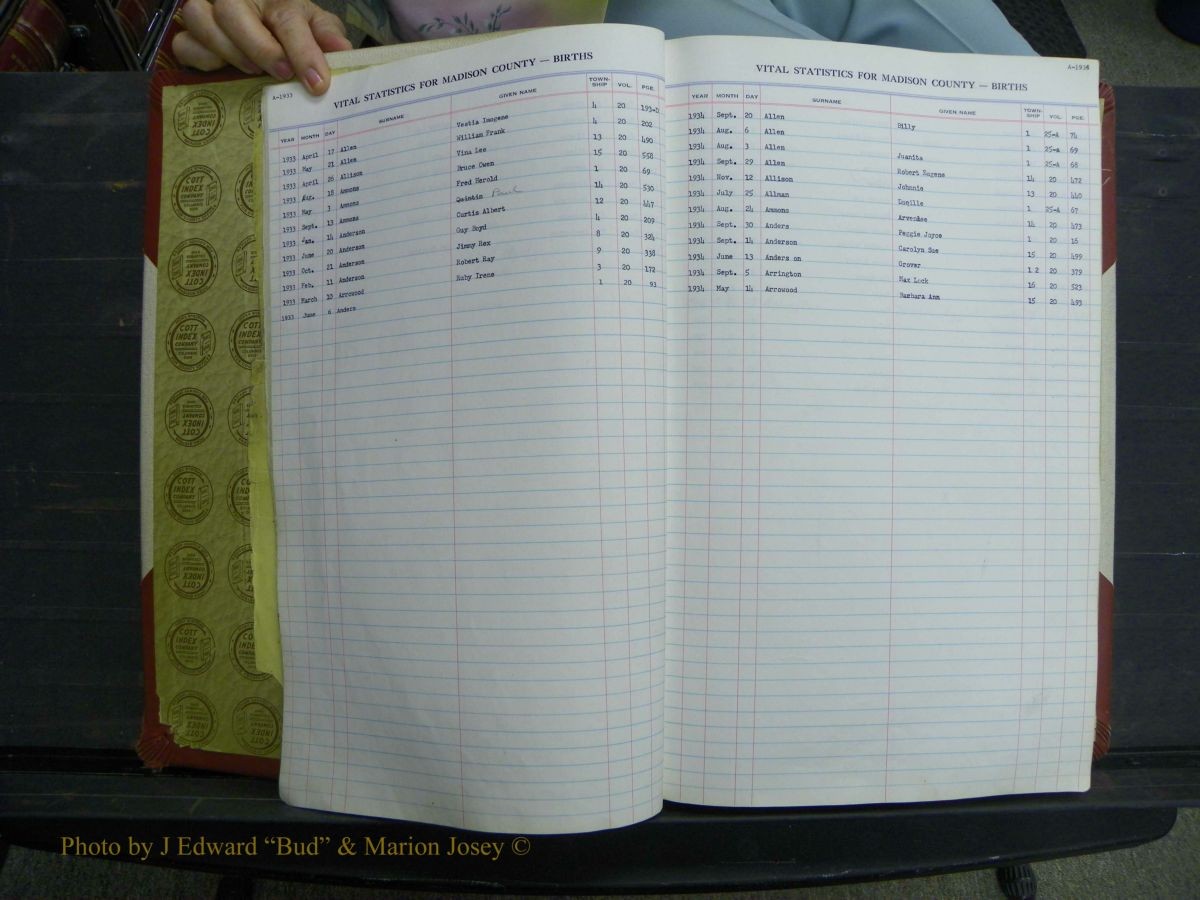 A-1933
VITAL STATISTICS FOR MADISON COUNTY — BIRTHS
YEAR MONTH DAY SURNAME GIVEN NAME TOWN-SHIP VOL. PGE.
1933 April 17 Allen Vestia Imogene 4 20 193-D
1933 May 21 Allen William Frank 4 20 202
1933 April 26 Allison Vina Lee 13 20 490
1933 Aug. 18 Ammons Bruce Owen 15 20 558
1933 May 1 Ammons Fred Herold 1 20 69
1933 Sept. 13 Ammons Quintin Paul 14 20 530
1933 Jan. 14 Anderson Curtis Albert 12 20 447
1933 June 20 Anderson Guy Boyd 4 20 209
1933 Oct. 21 Anderson Jimmy Rex 8 20 324
1933 Feb. 11 Anderson Robert Ray 9 20 338
1933 March 10 Arrowood Ruby Irene 3 20 172
1933 June 6 Anders 1 20 93
A-1934
VITAL STATISTICS FOR MADISON COUNTY — BIRTHS
YEAR MONTH DAY SURNAME GIVEN NAME TOWN-SHIP VOL. PGE.
1934 Sept. 20 Allen Billy 1 25-A 74
1934 Aug. 6 Allen 1 25-A 69
1934 Aug. 3 Allen Juanita 1 25-A 68
1934 Sept. 29 Allen Robert Eugene 14 20 472
1934 Nov. 12 Allison Johnnie 13 20 440
1934 July 25 Allman Lucille 1 25-A 67
1934 Aug. 24 Ammons 14 20 473
1934 Sept. 30 Anders Peggie Joyce 1 20 16
1934 Sept. 14 Anderson Carolyn Sue 15 20 499
1934 June 13 Anders on Grover 1 2 20 379
1934 Sept. 5 Arrington Max Lock 16 20 523
1934 May 14 Arrowood Barbara Ann 15 20 493
COTT INDEX COMPANY
Photo by J Edward “Bud” & Marion Josey ©